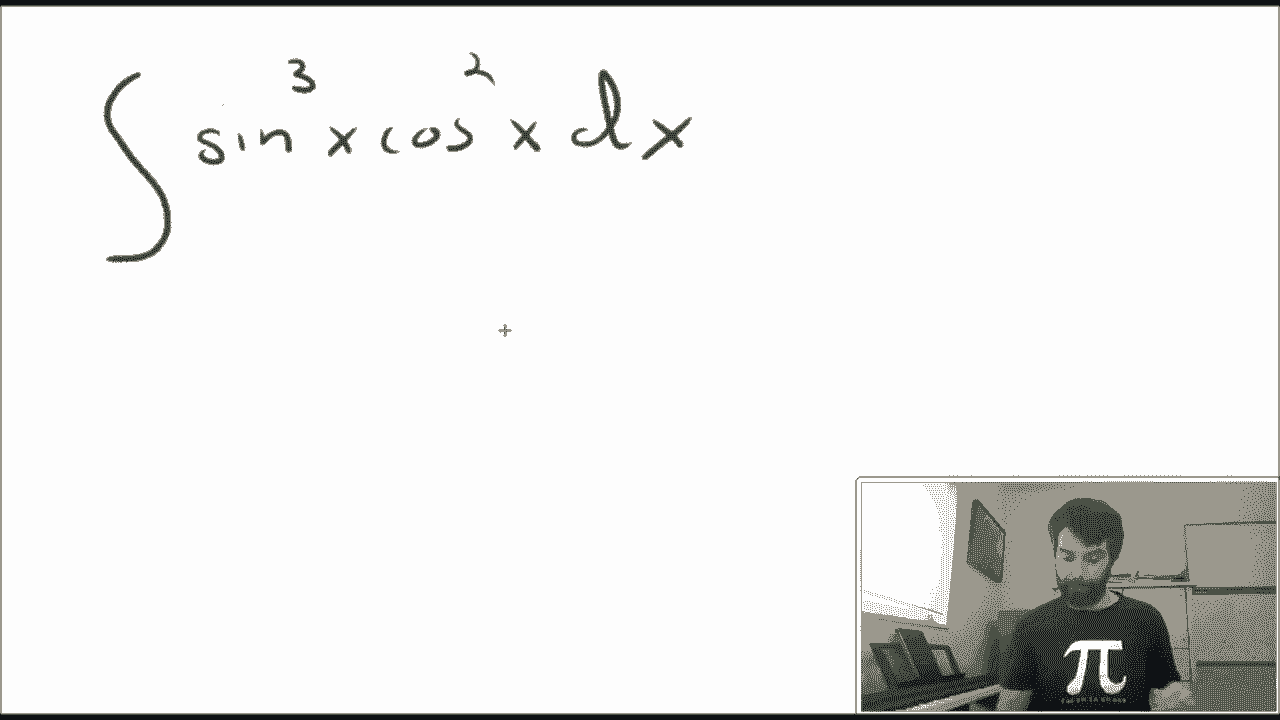 ∫ sin³x cos²x dx
π